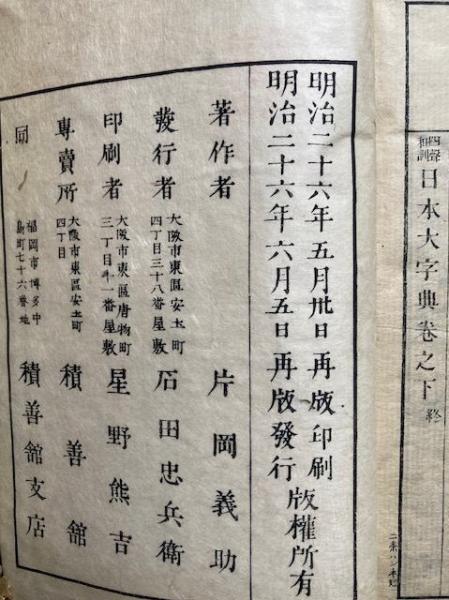 四聲和訓 日本大字典卷之下 終
明治二十六年五月卅日再版印刷
明治二十六年六月五日再版發行
版權所有
著作者 片岡義助
發行者 大阪市東區安土町四丁目三十八番屋敷 石田忠兵衛
印刷者 大阪市東區唐物町三丁目廿一番屋敷 星野熊吉
專賣所 大阪市東區安土町四丁目 積善舘
同 福岡市博多中島町七十六番地 積善舘支店